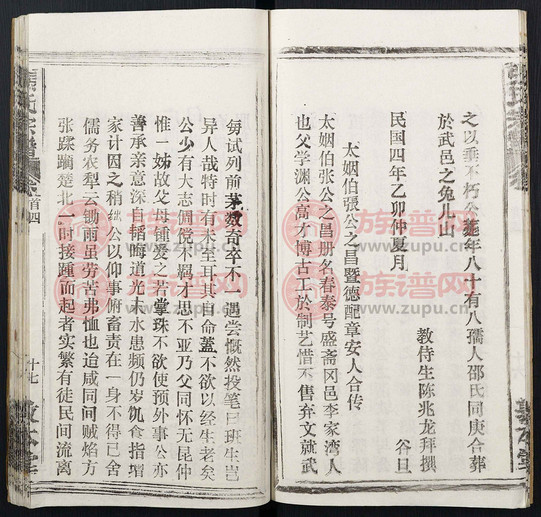 之以垂不朽公薨年八十有八孺人邵氏同庚合葬
於武邑之兔儿山
教侍生陈兆龙拜撰
民国四年乙卯仲夏月
谷旦
太姻伯張公之昌暨德配章安人合传
太姻伯张公之昌册名春泰号盛斋冈邑李家湾人
也父学渊公高才博古工於制艺惜不售弃文就武
每试列前茅数奇卒不遇尝慨然投笔曰班生岂
异人哉特时有未至耳其自命盖不欲以经生老矣
公少有大志倜傥不羁才思不亚乃父同怀无昆仲
惟一姊故父母锺爱之若掌珠不欲使预外事公亦
善承亲意深自韬晦道光末水患频仍岁饥食指增
家计因之稍绌公以仰事俯畜责在一身不得已舍
儒务农犁云锄雨虽劳苦弗恤也迨咸同间贼焰方
张蹂躏楚北一时接踵而起者实繁有徒民间流离
氏宗譜
首四
十七
敦本堂
族谱网
www.zupu.cn